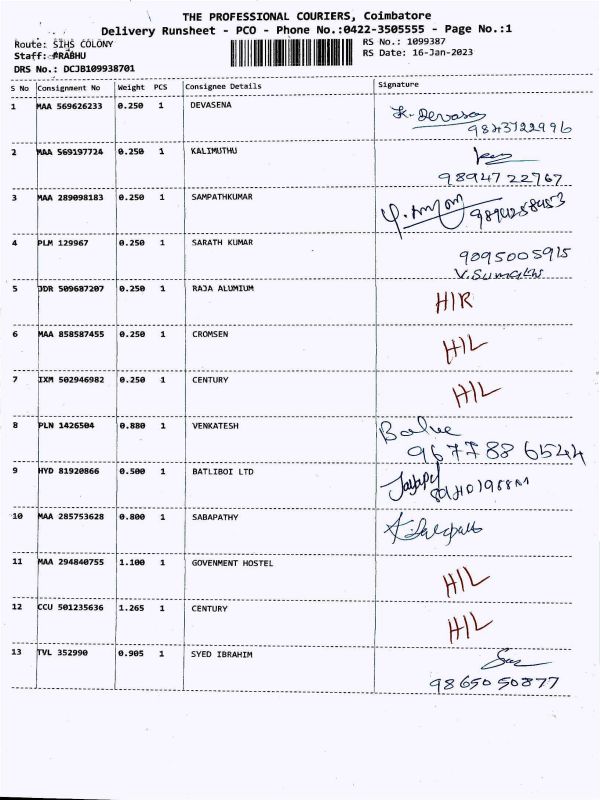 THE PROFESSIONAL COURIERS, Coimbatore
Delivery Runsheet - PCO - Phone No.:0422-3505555 - Page No.:1
Route: SIHS COLONY
Staff: PRABHU
DRS No.: DCJB109938701
RS No.: 1099387
RS Date: 16-Jan-2023
S No Consignment No Weight PCS Consignee Details Signature
1 MAA 569626233 0.250 1 DEVASENA K. Devasa
9843722996
2 MAA 569197724 0.250 1 KALIMUTHU
98947 22767
3 MAA 289098183 0.250 1 SAMPATHKUMAR
4 PLM 129967 0.250 1 SARATH KUMAR 9095005915
V. Sumathi
5 JDR 509687207 0.250 1 RAJA ALUMIUM H/R
6 MAA 858587455 0.250 1 CROMSEN H/L
7 IXM 502946982 0.250 1 CENTURY H/L
8 PLN 1426504 0.880 1 VENKATESH
96778 86544
9 HYD 81920866 0.500 1 BATLIBOI LTD
10 MAA 285753628 0.800 1 SABAPATHY
11 MAA 294840755 1.100 1 GOVENMENT HOSTEL H/L
12 CCU 501235636 1.265 1 CENTURY H/L
13 TVL 352990 0.905 1 SYED IBRAHIM
98650 50877